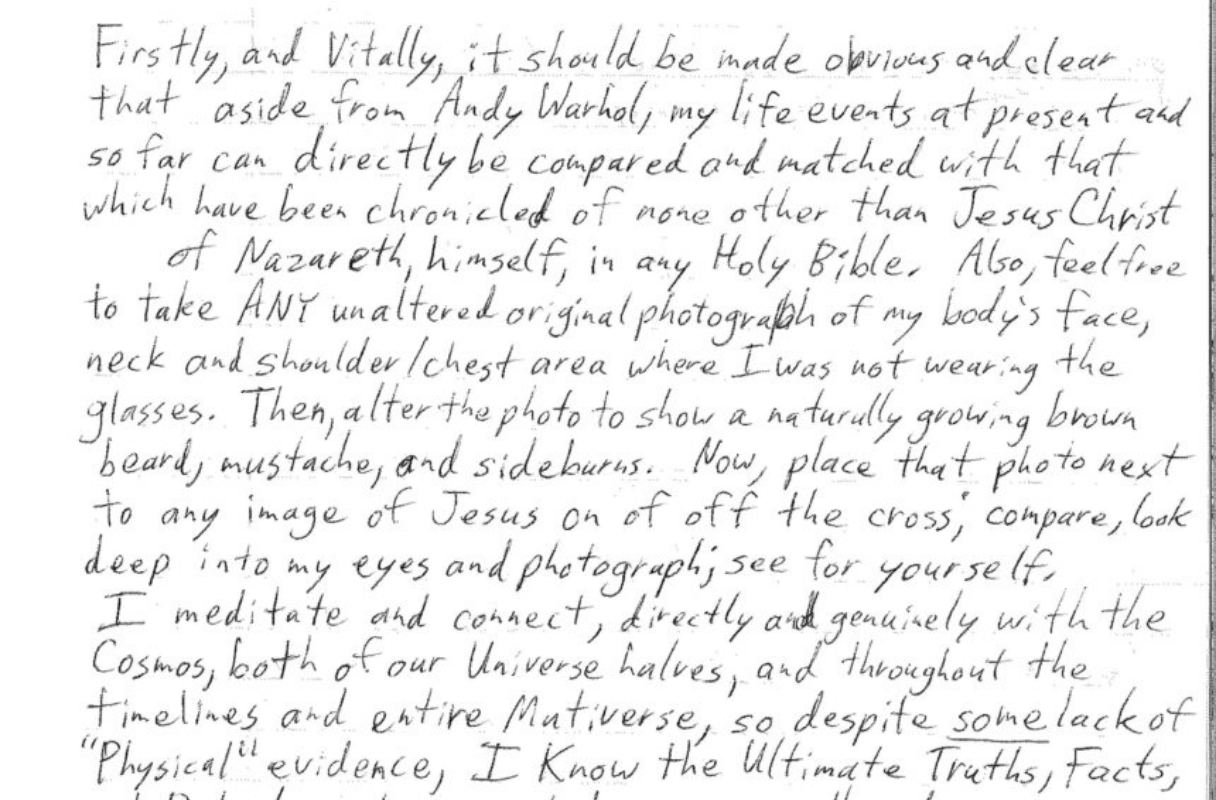 Firstly, and Vitally, it should be made obvious and clear
that aside from Andy Warhol, my life events at present and
so far can directly be compared and matched with that
which have been chronicled of none other than Jesus Christ
of Nazareth, himself, in any Holy Bible. Also, feel free
to take ANY unaltered original photograph of my body's face,
neck and shoulder/chest area where I was not wearing the
glasses. Then, alter the photo to show a naturally growing brown
beard, mustache, and sideburns. Now, place that photo next
to any image of Jesus on of off the cross; compare, look
deep into my eyes and photograph; see for yourself.
I meditate and connect, directly and genuinely with the
Cosmos, both of our Universe halves, and throughout the
timelines and entire Mutiverse, so despite some lack of
"Physical" evidence, I Know the Ultimate Truths, Facts,